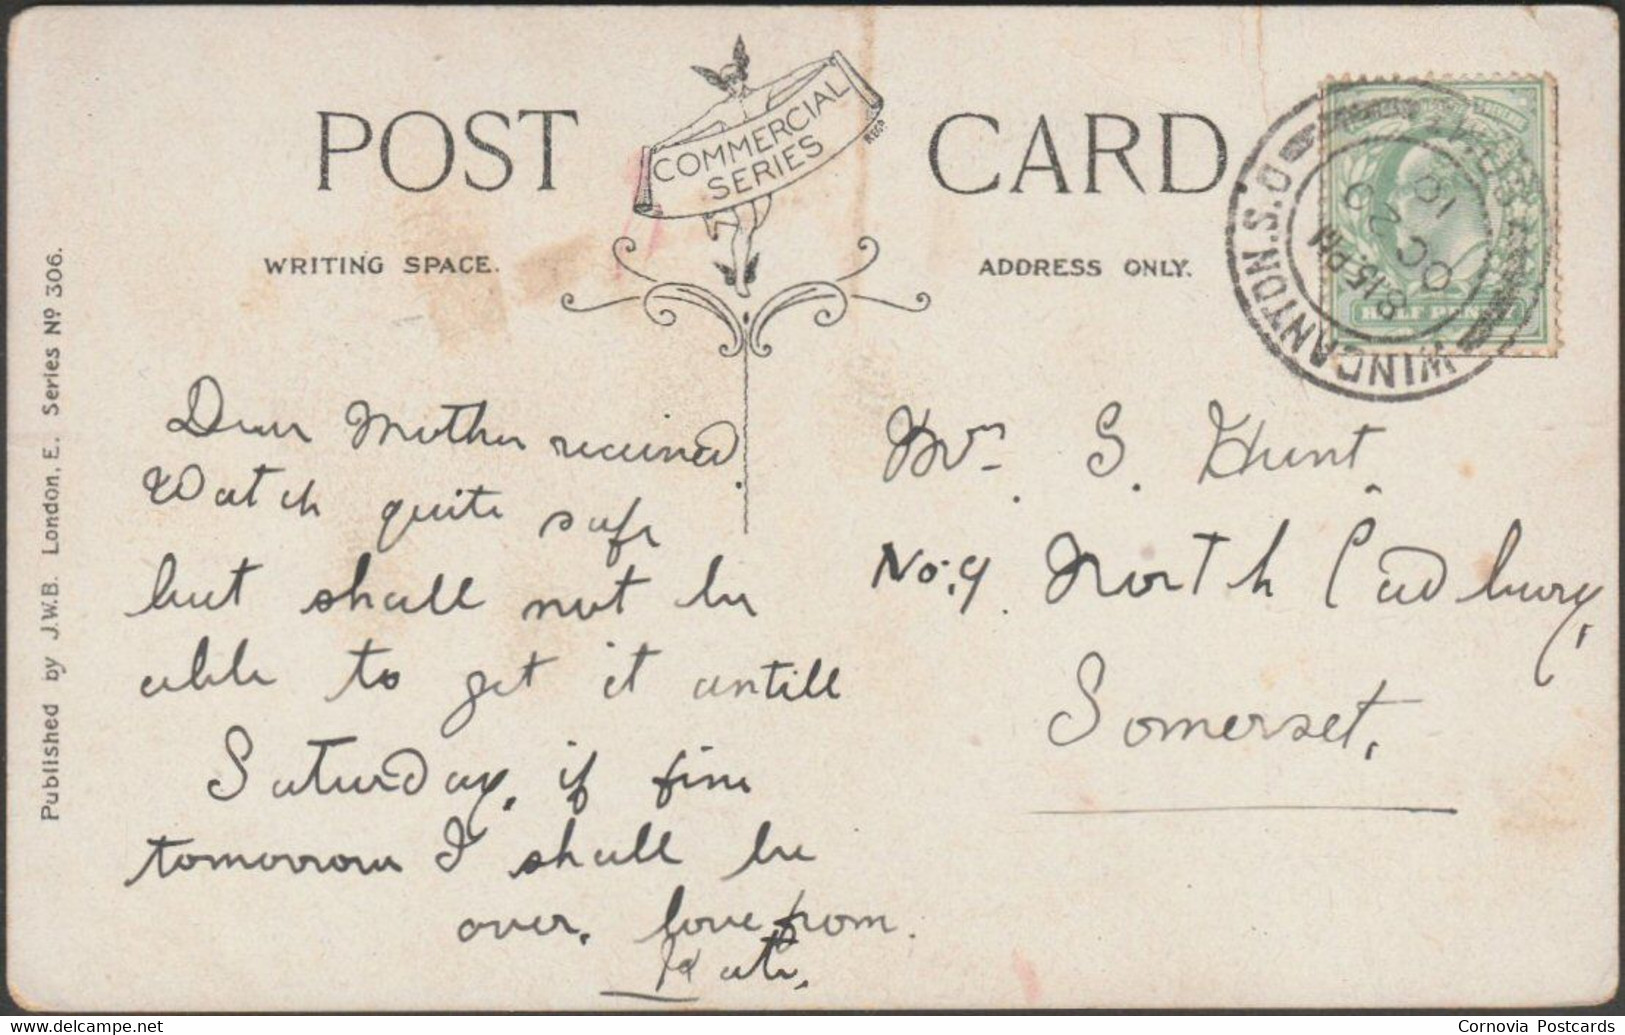 POST CARD
COMMERCIAL
SERIES
WRITING SPACE.
ADDRESS ONLY.
Published by J.W.B. London, E. Series Nº 306.
WINCANTON.S.O
8.15 PM
OC 20
10
HALF PENNY
Dear Mother received
Watch quite safe
but shall not be
able to get it untill
Saturday, if fine
tomorrow I shall be
over. love from
Kate.
Mrs. S. Hunt.
No. 9. North Cadbury,
Somerset.
Cornovia Postcards
www.delcampe.net